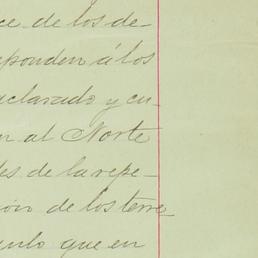 ce de los de-
sponden á los
aclarado y cu-
n al Norte
des de la repe-
ión de los terre
ulo que en